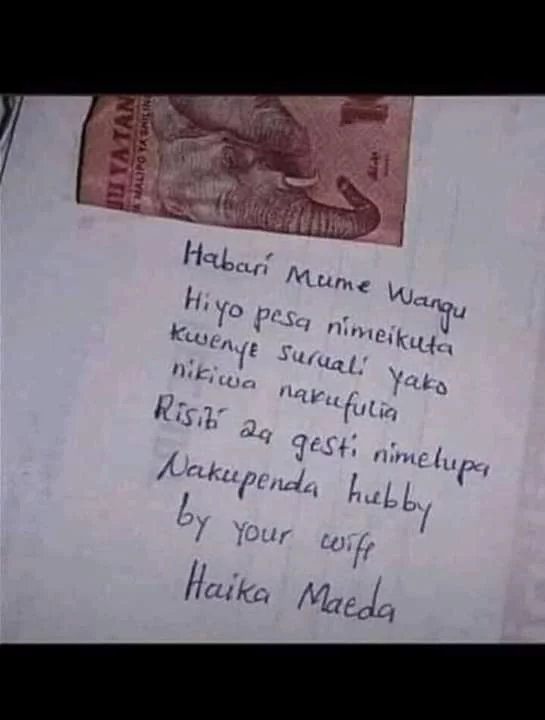 YA TAN
MALIPO YA SHILIN
Habari Mume Wangu
Hiyo pesa nimeikuta
Kwenye suruali yako
nikiwa nakufulia
Risiti za gesti nimetupa
Nakupenda hubby
by your wife
Haika Maeda